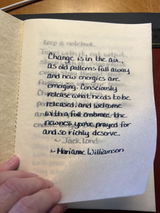 Change is in the air.
As old patterns fall away
and new energies are
emerging. Consciously
release what needs to be
released, and welcome
with a full embrace the
newness you've prayed for
and so richly deserve.
~ Marianne Williamson